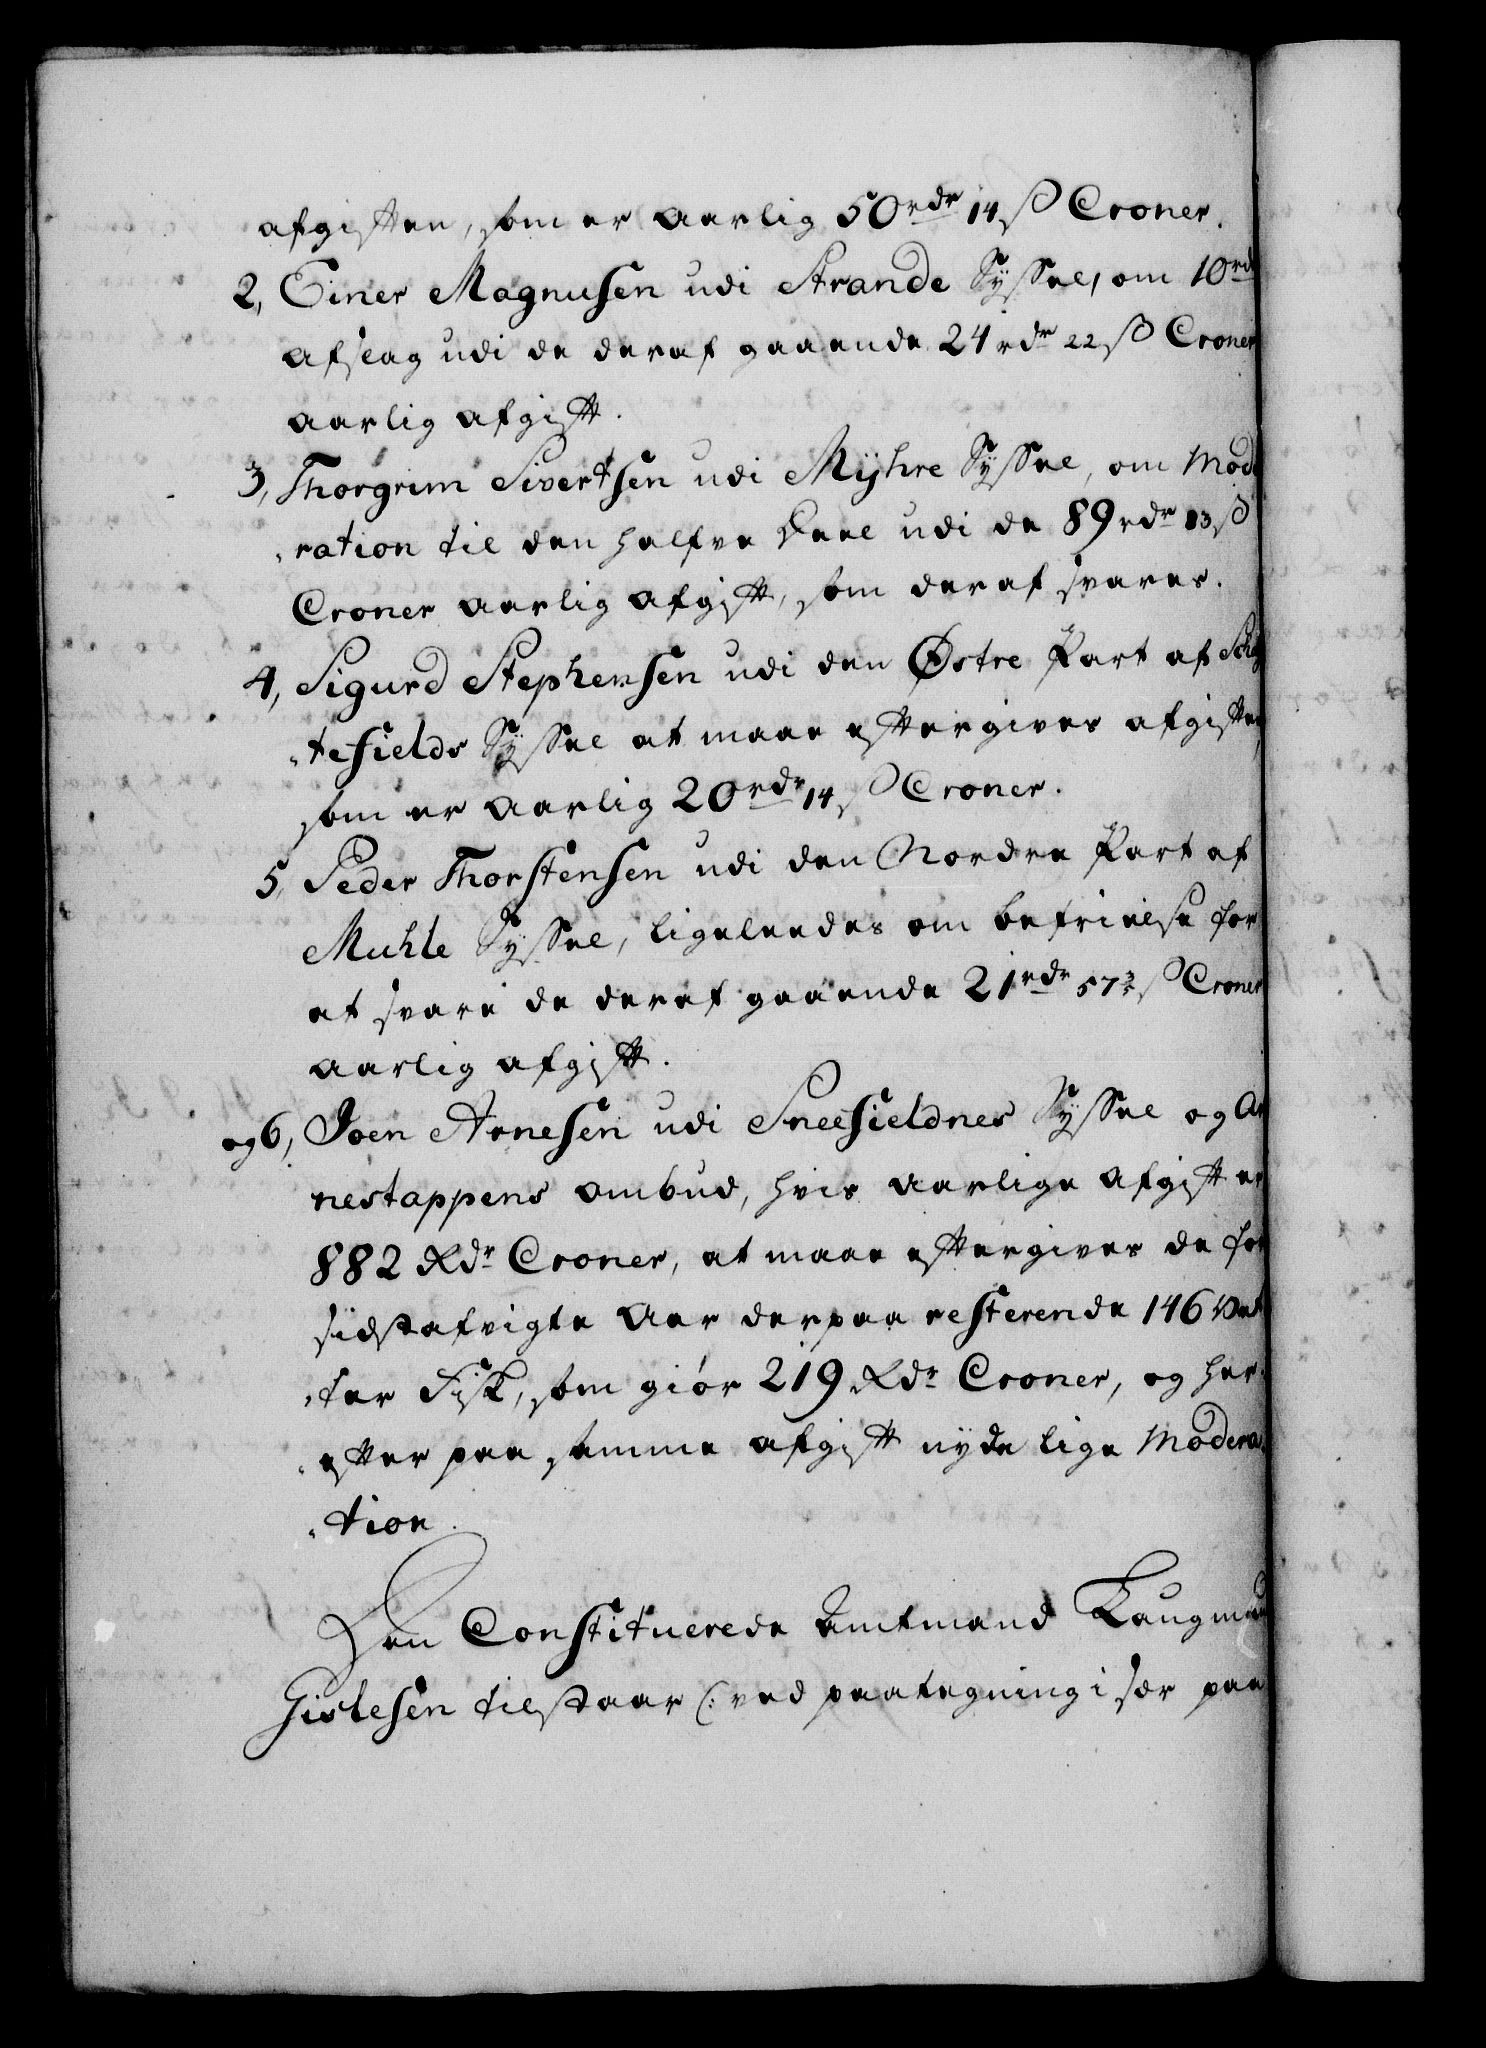 afgiften, som er aarlig 50 rdr 14 ß Croner.
2, Einer Magnusen udi Strande Syssel, om 10 rd
afslag udi de deraf gaaende 24 rdr 22 ß Croner
aarlig afgift.
3, Thorgrim Sivertsen udi Myhre Syssel, om Mod
ration til den halfve Deel udi de 89 rdr 13 ß
Croner aarlig afgift, som deraf svares.
4, Sigurd Stephensen udi den Østre Part af
tefields Syssel at maae eftergives afgiften
som er aarlig 20 rdr 14 ß Croner.
5, Peder Thorstensen udi den Nordre Part af
Muhle Syssel, ligeleedes om befrielse for
at svare de deraf gaaende 21 rdr 57 ß Croner
aarlig afgift.
og 6, Joen Arnesen udi Sneefieldnes Syssel og Ar
nestappens ombud, hvis aarlige afgift er
882 Rdr Croner, at maae eftergives de for
sidstafvigte Aar derpaa resterende 146 Vet
ter Fisk, som giør 219 Rdr Croner, og her
efter paa samme afgift nyde lige Modera
tion.
Den Constituerede Amtmand Laugmand
Gislesen tilstaar (: ved paategning i sær paa